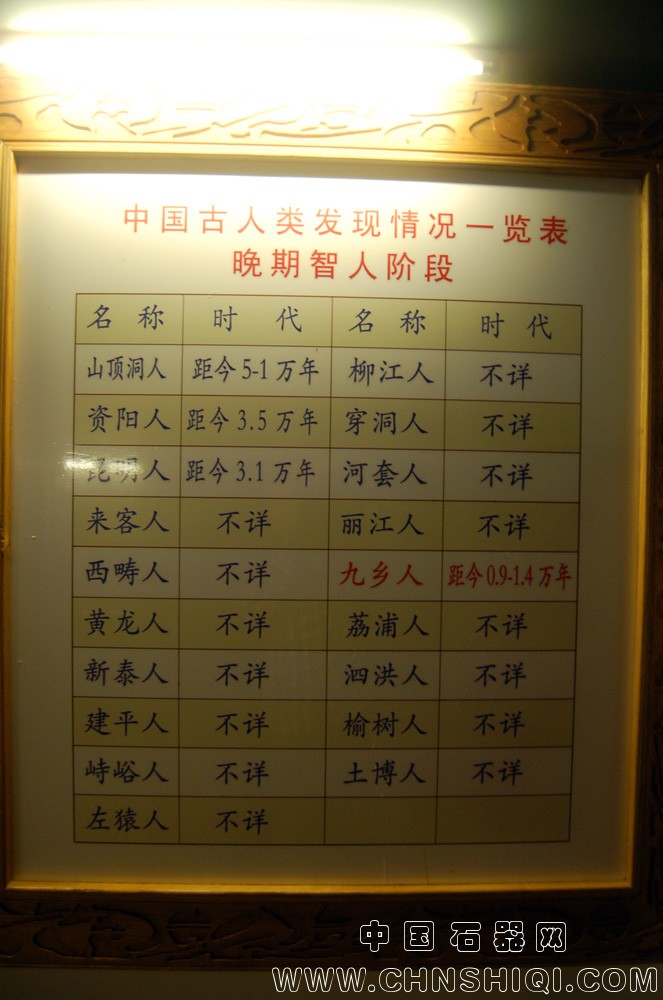 中国古人类发现情况一览表
晚期智人阶段
名称 时代 名称 时代
山顶洞人 距今5-1万年 柳江人 不详
资阳人 距今3.5万年 穿洞人 不详
昆明人 距今3.1万年 河套人 不详
来客人 不详 丽江人 不详
西畴人 不详 九乡人 距今0.9-1.4万年
黄龙人 不详 荔浦人 不详
新泰人 不详 泗洪人 不详
建平人 不详 榆树人 不详
峙峪人 不详 土博人 不详
左猿人 不详
中国石器网
WWW.CHNSHIQI.COM